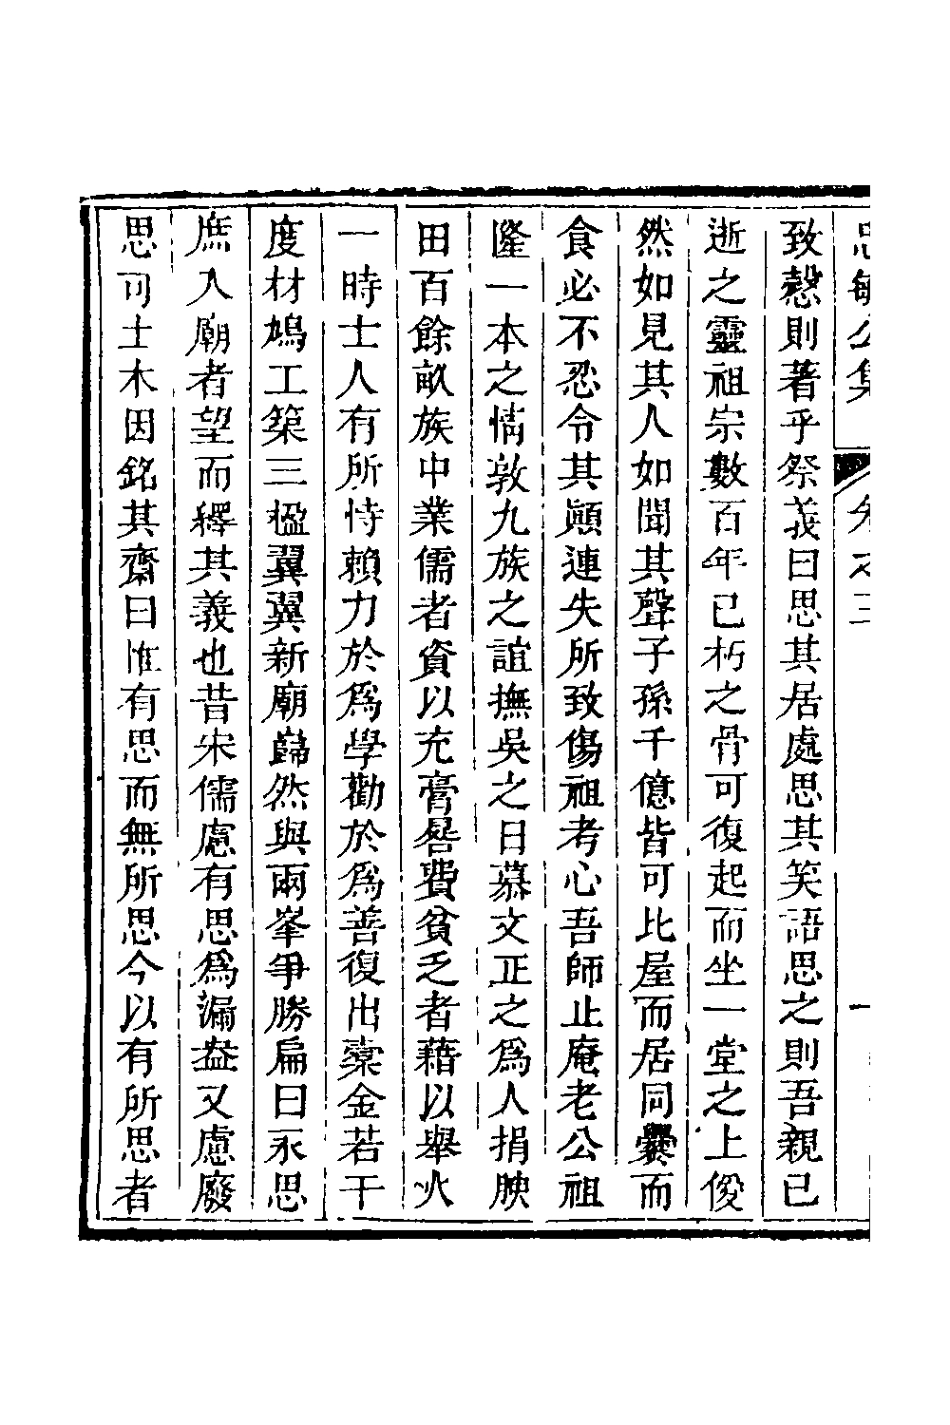 忠敏公集 卷之三 一
致慤則著乎祭義曰思其居處思其笑語思之則吾親已
逝之靈祖宗數百年已朽之骨可復起而坐一堂之上僾
然如見其人如聞其聲子孫千億皆可比屋而居同爨而
食必不忍令其顚連失所致傷祖考心吾師止庵老公祖
隆一本之情敦九族之誼撫吳之日慕文正之爲人捐腴
田百餘畝族中業儒者資以充膏晷費貧乏者藉以舉火
一時士人有所恃賴力於爲學勸於爲善復出槖金若干
度材鳩工築三楹翼翼新廟巋然與兩峯爭勝扁曰永思
庶入廟者望而繹其義也昔宋儒慮有思爲漏盎又慮廢
思同土木因銘其齋曰惟有思而無所思今以有所思者